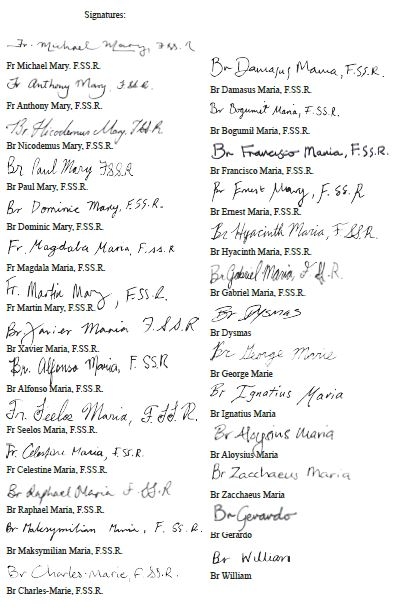 Signatures:
Fr. Michael Mary, F.SS.R
Fr Michael Mary. F.SS.R.
Fr Anthony Mary, F.SS.R.
Fr Anthony Mary, F.SS.R.
Br Nicodemus Mary, F.SS.R.
Br Nicodemus Mary, F.SS.R.
Br Paul Mary F.SS.R
Br Paul Mary, F.SS.R.
Br Dominic Mary, F.SS.R.
Br Dominic Mary, F.SS.R.
Fr. Magdala Maria, F.SS.R
Fr Magdala Maria, F.SS.R.
Fr. Martin Mary, F.SS.R.
Fr Martin Mary, F.SS.R.
Br Xavier Maria F.S.S.R
Br Xavier Maria, F.SS.R.
Br. Alfonso Maria, F. SSR
Br Alfonso Maria, F.SS.R.
Fr. Seelos Maria, F.SS.R.
Fr Seelos Maria, F.SS.R.
Fr. Celestine Maria, F.SS.R.
Fr Celestine Maria, F.SS.R.
Br Raphael Maria F.SS.R
Br Raphael Maria, F.SS.R.
Br Maksymilian Maria, F. SS. R.
Br Maksymilian Maria, F.SS.R.
Br Charles-Marie, F.SS.R.
Br Charles-Marie, F.SS.R.
Br Damasus Maria, F.SS.R.
Br Damasus Maria, F.SS.R.
Br Bogumił Maria, F.SS.R.
Br Bogumil Maria, F.SS.R.
Br Francisco Maria, F.SS.R.
Br Francisco Maria, F.SS.R.
Br Ernest Mary, F. SS. R
Br Ernest Maria, F.SS.R.
Br Hyacinth Maria, F.SS.R.
Br Hyacinth Maria, F.SS.R.
Br Gabriel Maria, F.SS.R.
Br Gabriel Maria, F.SS.R.
Br Dysmas
Br Dysmas
Br George Marie
Br George Marie
Br Ignatius Maria
Br Ignatius Maria
Br Aloysius Maria
Br Aloysius Maria
Br Zacchaeus Maria
Br Zacchaeus Maria
Br Gerardo
Br Gerardo
Br William
Br William